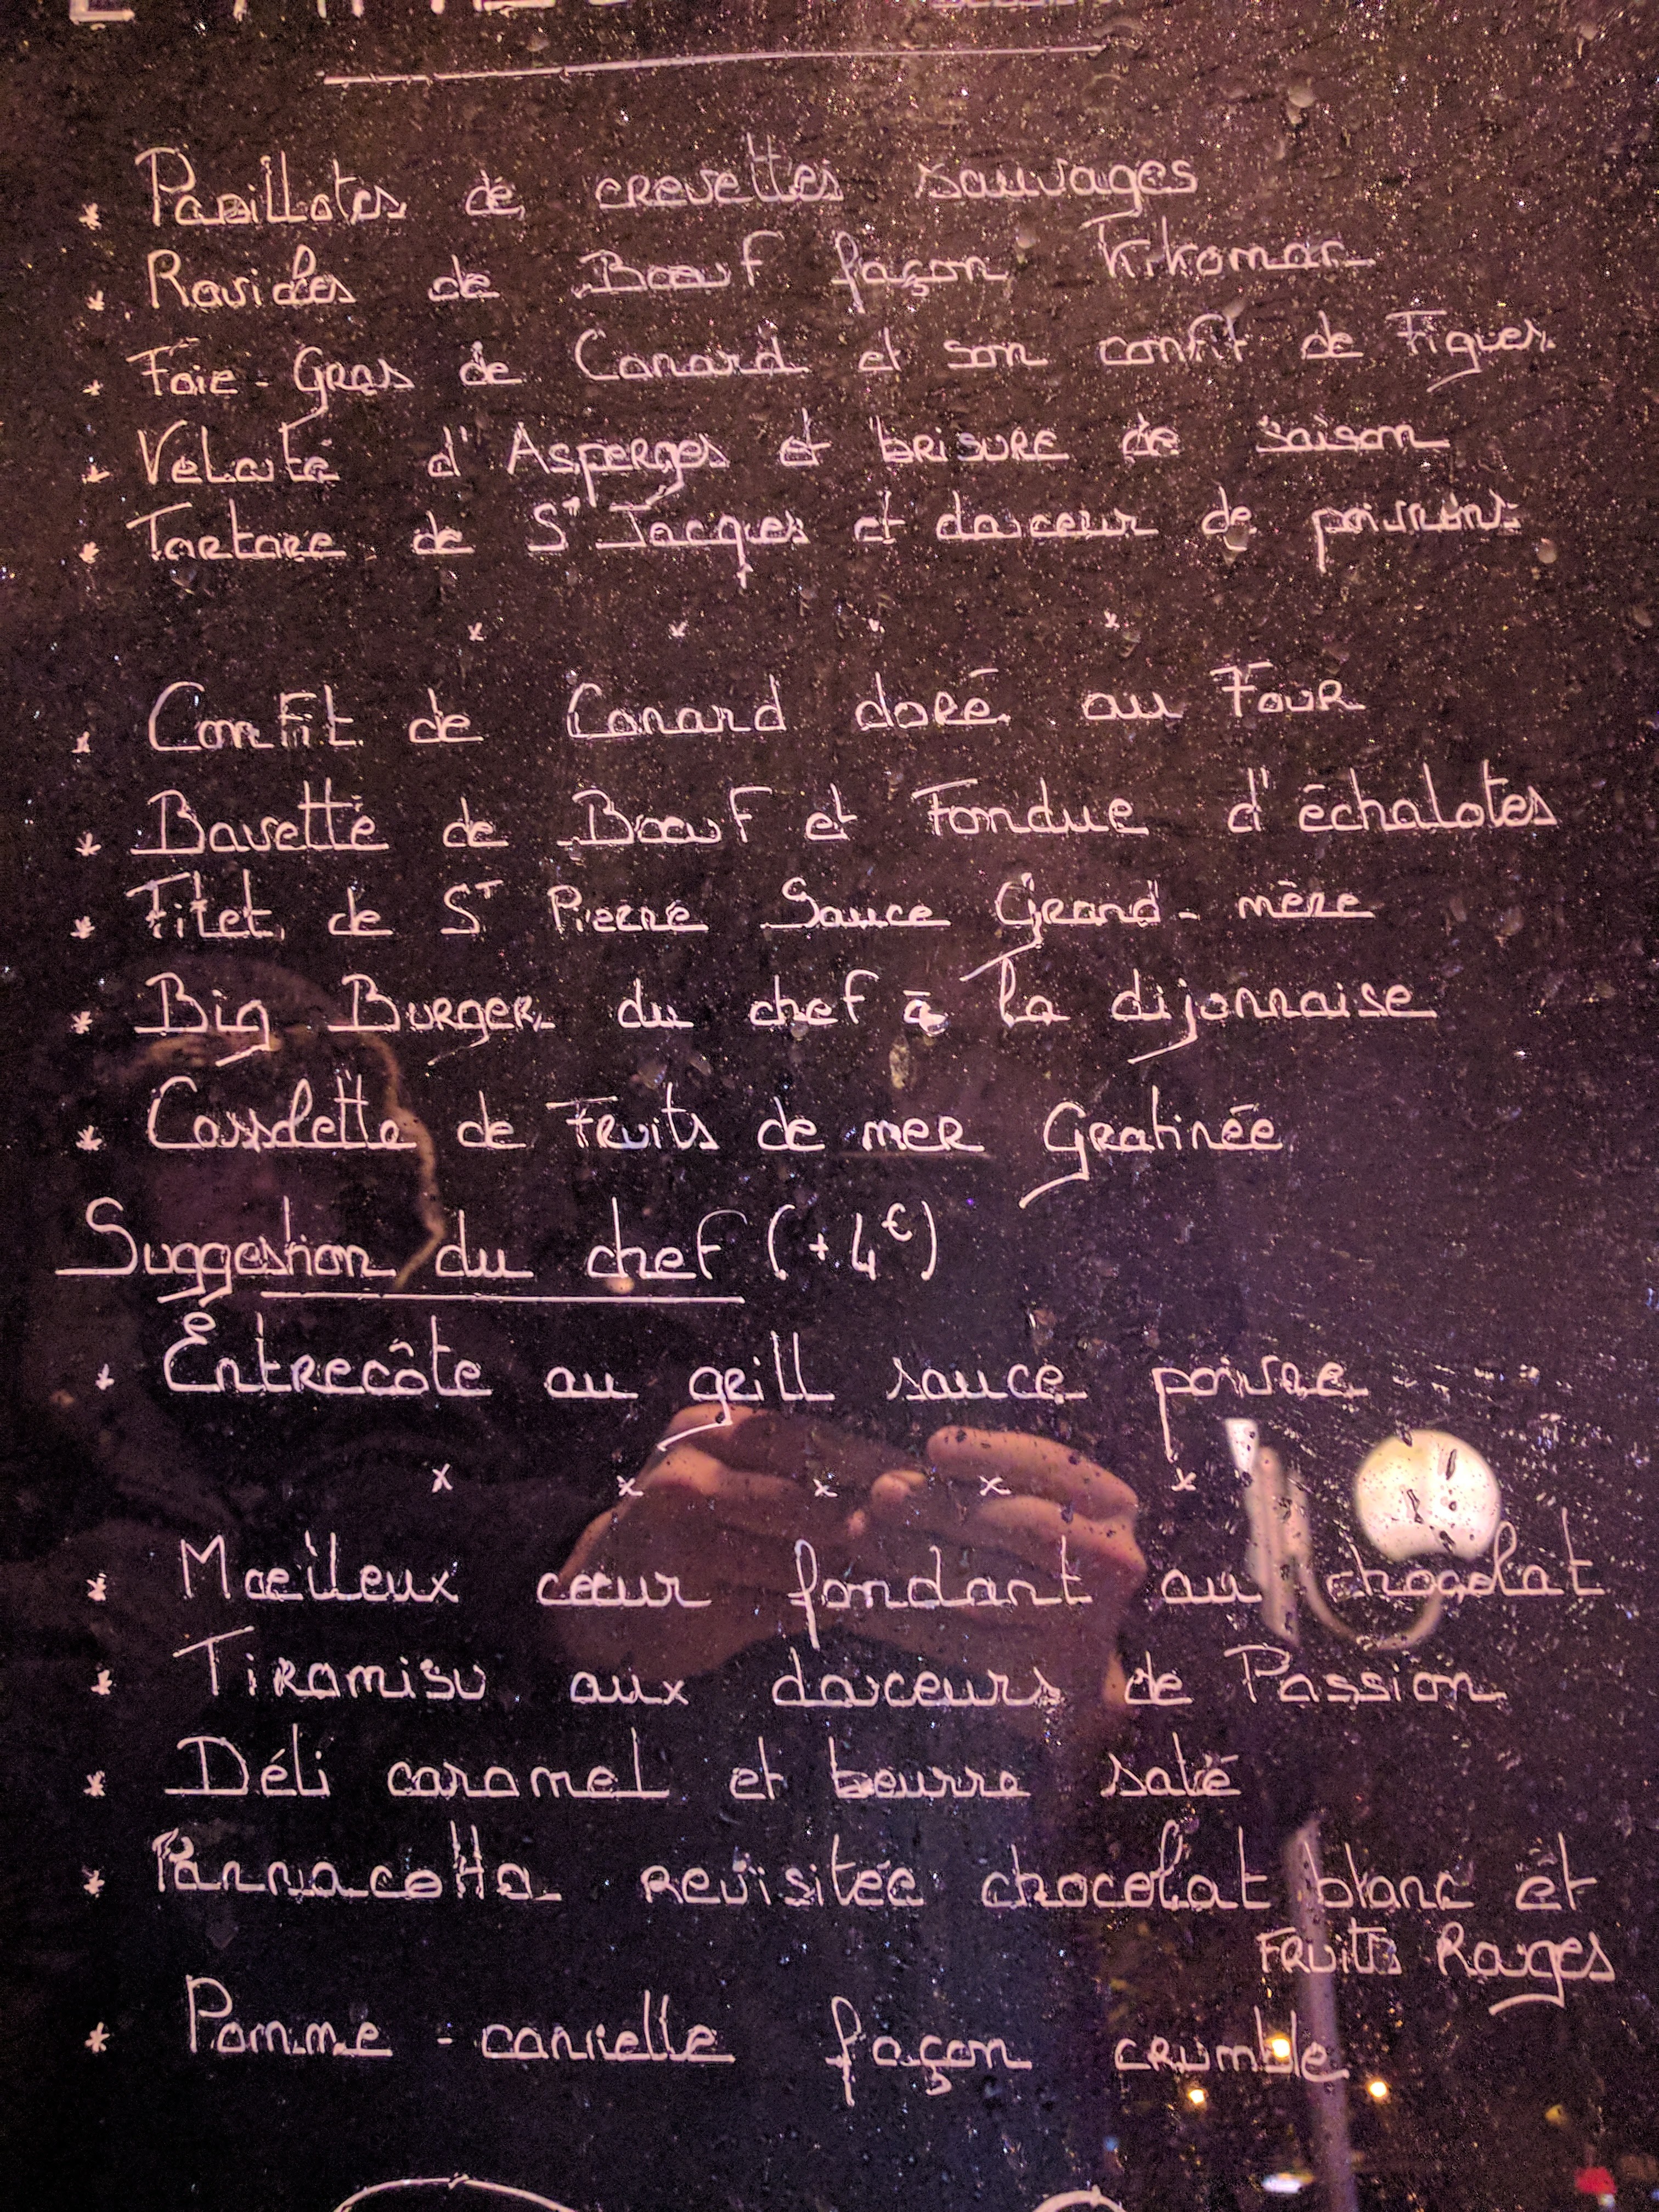 * Papillotes de crevettes sauvages
* Ravioles de Boeuf façon Kikoman
* Foie-Gras de Canard et son confit de Figues
* Velouté d'Asperges et brisure de saison
* Tartare de St Jacques et douceur de poissons
* * * *
* Confit de Canard doré au Four
* Bavette de Boeuf et Fondue d'échalotes
* Filet de St Pierre Sauce Grand-mère
* Big Burger du chef à la dijonnaise
* Cassolette de Fruits de mer Gratinée
Suggestion du chef (+4€)
* Entrecôte au grill sauce poivre
x x x x x
* Moelleux coeur fondant au chocolat
* Tiramisu aux douceurs de Passion
* Déli caramel et beurre salé
* Pannacotta revisitée chocolat blanc et
Fruits Rouges
* Pomme-cannelle façon crumble